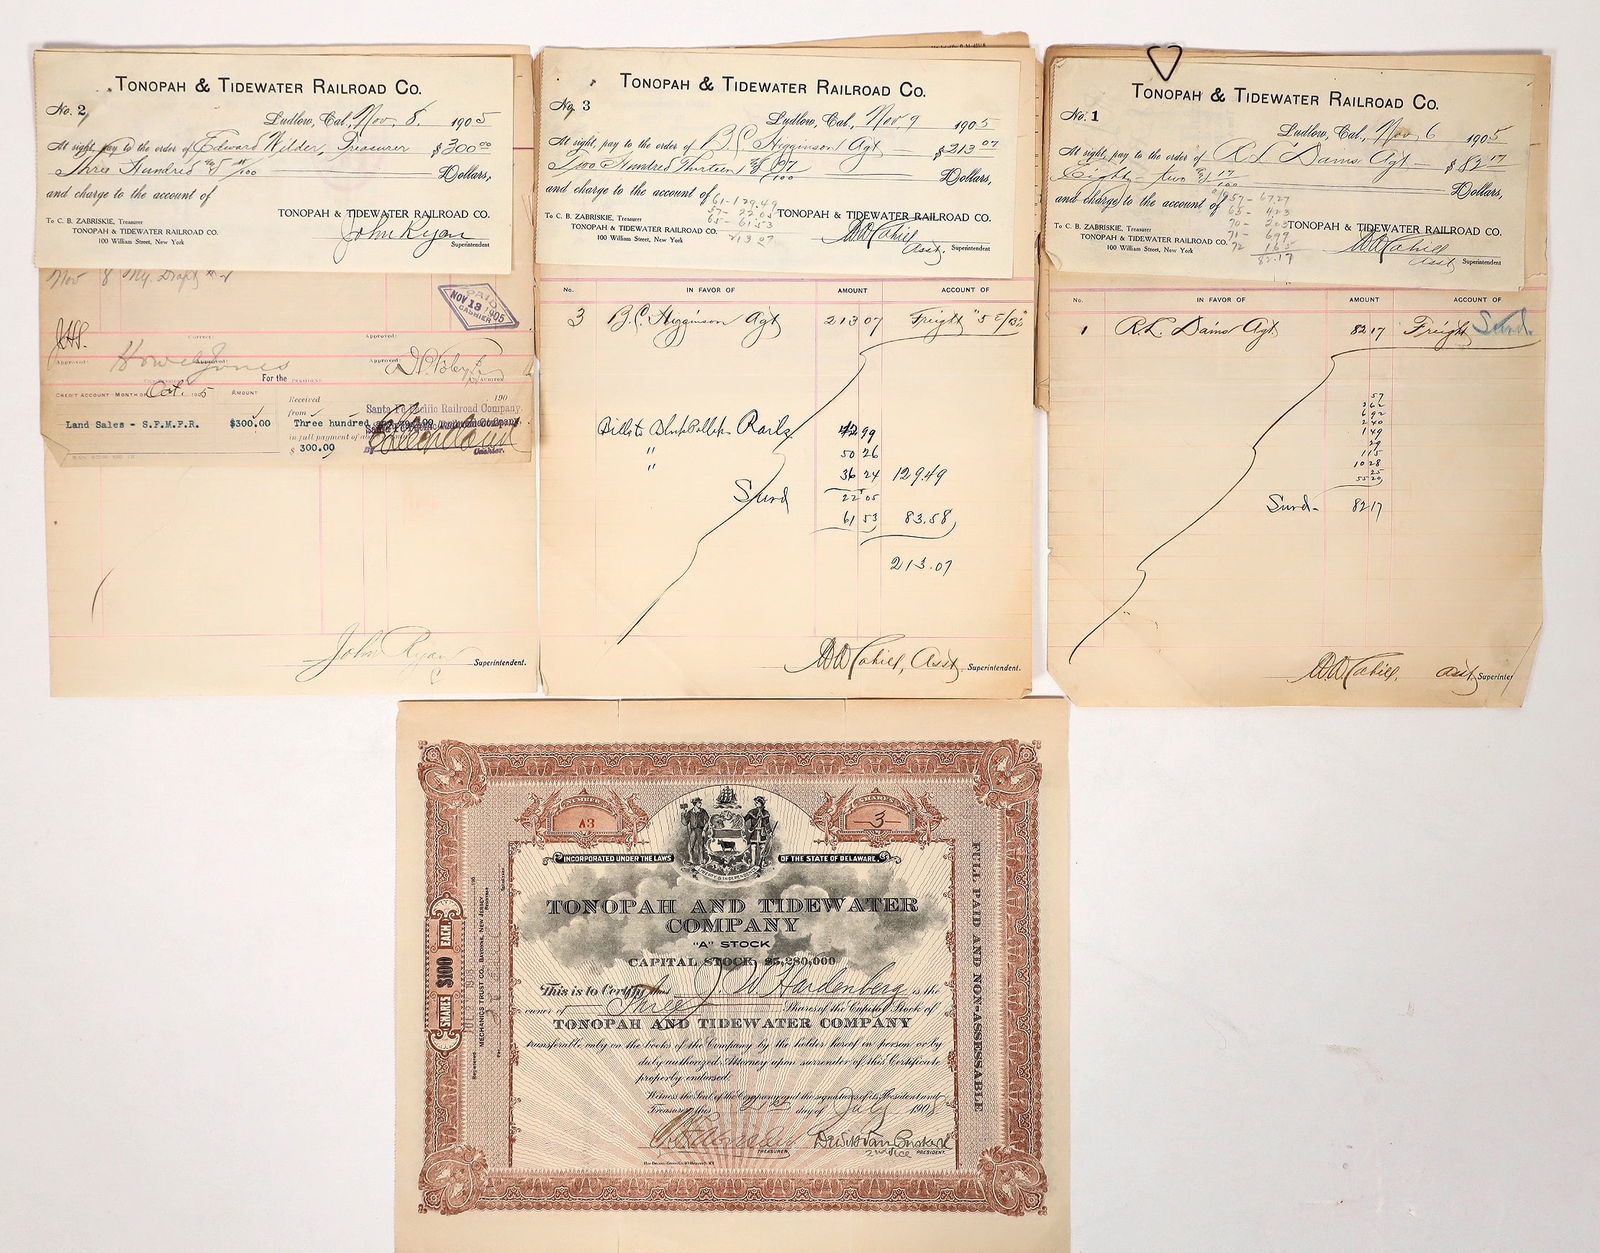 TONOPAH & TIDEWATER RAILROAD CO.
No. 2
Ludlow, Cal., Nov. 8. 1905
At sight, pay to the order of Edward Wilder, Treasurer $300 00
Three Hundred /100 Dollars,
and charge to the account of
TONOPAH & TIDEWATER RAILROAD CO.
To C. B. ZABRISKIE, Treasurer
TONOPAH & TIDEWATER RAILROAD CO.
100 William Street, New York
John Ryan
Superintendent
Nov 8 My. Draft
PAID
NOV 18 1905
CASHIER
Correct:
Approved:
Approved:
Howel Jones
For the
Approved:
AUDITOR
CREDIT ACCOUNT MONTH OF Oct. 1905 AMOUNT
Land Sales - S.F.M.F.R. $300.00
Received 190
from
Santa Fe Pacific Railroad Company.
Three hundred
in full payment of
$ 300.00
By Cashier.
John Ryan Superintendent.
TONOPAH & TIDEWATER RAILROAD CO.
No. 3
Ludlow, Cal., Nov 9 1905
At sight, pay to the order of B.C. Higginson Agt $213 07
Two Hundred Thirteen & 07/100 Dollars,
and charge to the account of
61-129.49
57- 22.05
65- 61.53
213 07
TONOPAH & TIDEWATER RAILROAD CO.
To C. B. ZABRISKIE, Treasurer
TONOPAH & TIDEWATER RAILROAD CO.
100 William Street, New York
W.W. Cahill
Asst. Superintendent
No. IN FAVOR OF AMOUNT ACCOUNT OF
3 B.C. Higginson Agt 213 07 Freight
Rails 42 99
" 50 26
" 36 24 129.49
Sund 22 05
61 53 83.58
213.07
W.W. Cahill, Asst. Superintendent.
TONOPAH & TIDEWATER RAILROAD CO.
No. 1
Ludlow, Cal., Nov 6 1905
At sight, pay to the order of R.L. Dams Agt $82 17
Eighty-two & 17/100 Dollars,
and charge to the account of
57- 67.27
65- 4.23
70- 2.03
71- 6.99
72 1.65
82.17
TONOPAH & TIDEWATER RAILROAD CO.
To C. B. ZABRISKIE, Treasurer
TONOPAH & TIDEWATER RAILROAD CO.
100 William Street, New York
W.W. Cahill
Asst Superintendent
No. IN FAVOR OF AMOUNT ACCOUNT OF
1 R.L. Dams Agt 82 17 Freight Sund.
57
2 62
6 92
2 40
1 49
29
1 15
10 28
25
55 20
Sund- 82 17
W.W. Cahill, Asst. Superinten
NUMBER
A3
SHARES
3
INCORPORATED UNDER THE LAWS OF THE STATE OF DELAWARE
LIBERTY & INDEPENDENCE
TONOPAH AND TIDEWATER
COMPANY
"A" STOCK
CAPITAL STOCK, $5,280,000
This is to Certify that J. W. Hardenberg is the
owner of Three Shares of the Capital Stock of
TONOPAH AND TIDEWATER COMPANY
transferable only on the books of the Company by the holder hereof in person or by
duly authorized Attorney upon surrender of this Certificate
properly endorsed.
Witness the Seal of the Company and the signatures of its President and
Treasurer this 21st day of July 1908
TREASURER.
2nd Vice PRESIDENT.
SHARES $100 EACH
MECHANICS TRUST CO., BAYONNE, NEW JERSEY
FULL PAID AND NON-ASSESSABLE